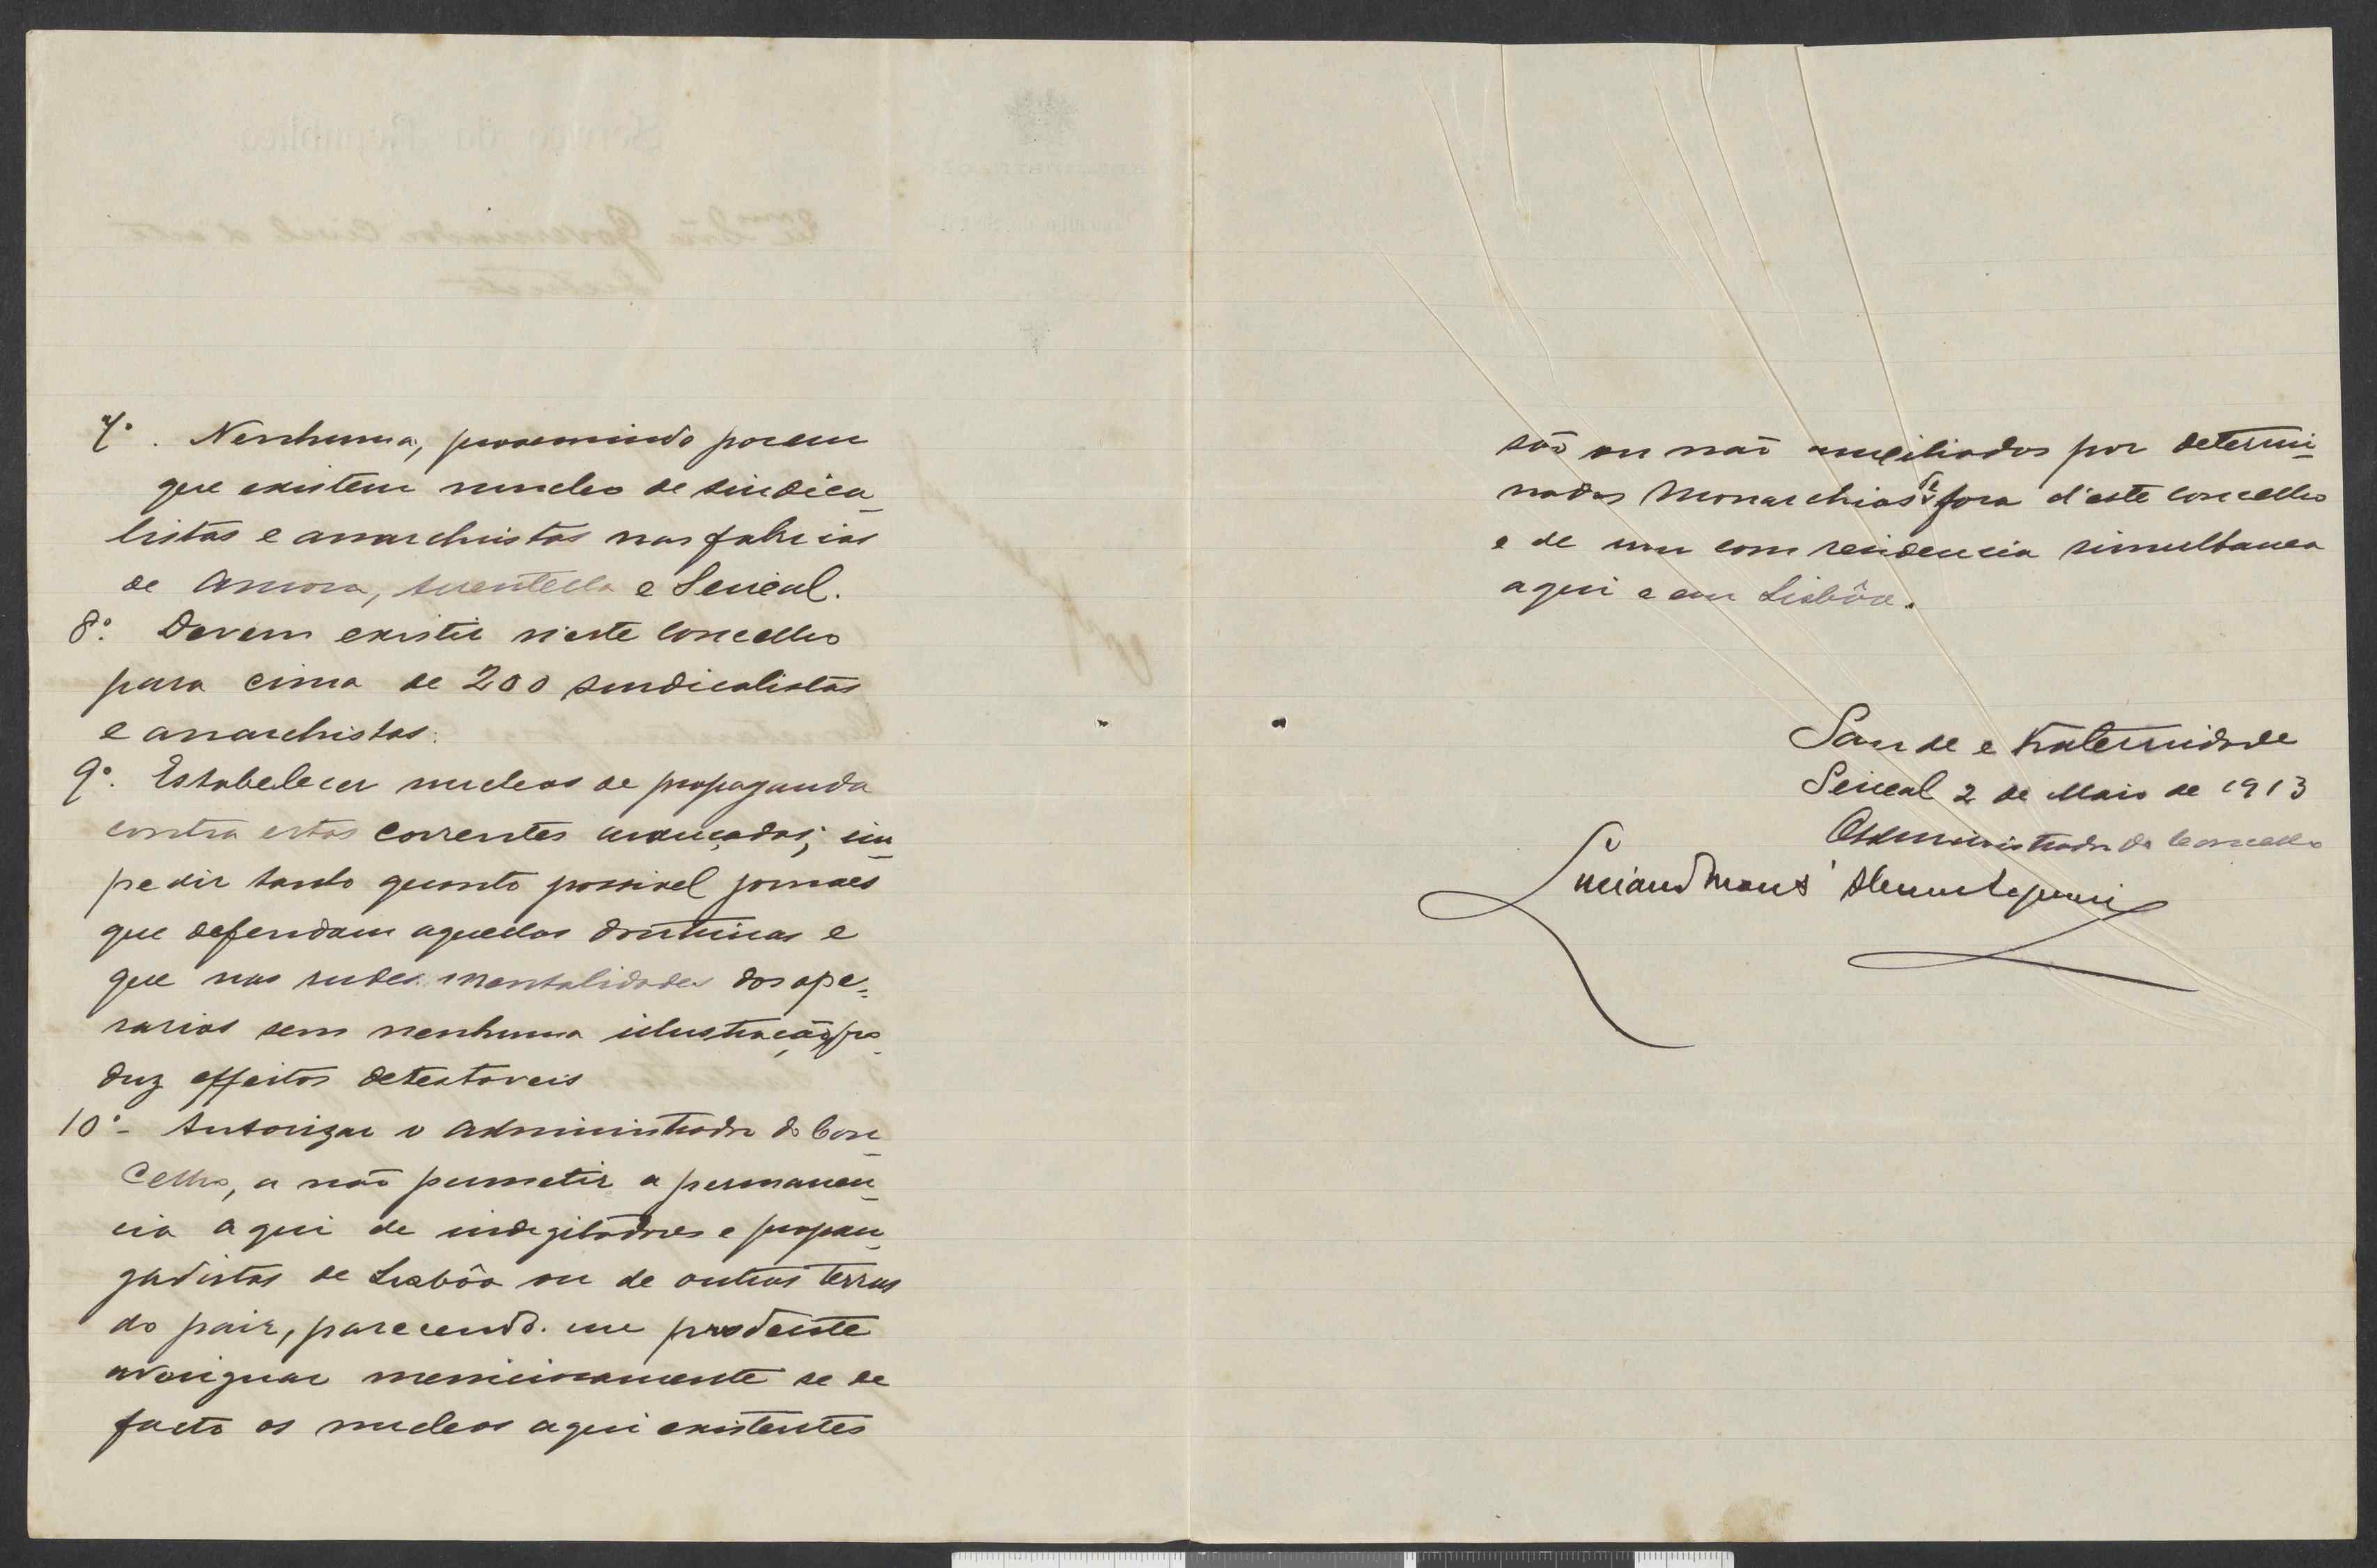 7º. Nenhuma, presumindo porem
que existem nucleo de sindica-
listas e anarchistas nas fabricas
de Amora, Arrentella e Seixal.
8º. Devem existir n'este Concelho
para cima de 200 sindicalistas
e anarchistas.
9º. Estabelecer nucleos de propaganda
contra estas correntes avançadas; im-
pedir tanto quanto possivel jornaes
que defendam aquellas doutrinas e
que nas rudes mentalidades dos ope-
rarios sem nenhuma ilustração pro-
duz effeitos detestaveis
10º- Autorizar o Administrador do Con-
celho, a não permetir a permanen-
cia aqui de indigitadores e propan-
gadistas de Lisbôa ou de outras terras
do paiz, parecendo-me prudente
averiguar menuciosamente se de
facto os nucleos aqui existentes
são ou não auxiliados por determi-
nados Monarchicos de fora d'este concelho
e de um com residencia simultanea
aqui e em Lisbôa.
Saude e Fraternidade
Seixal 2 de Maio de 1913
O Administrador do Concelho
Luciano
Serviço da Republica
Governador Civil d'este
Districto